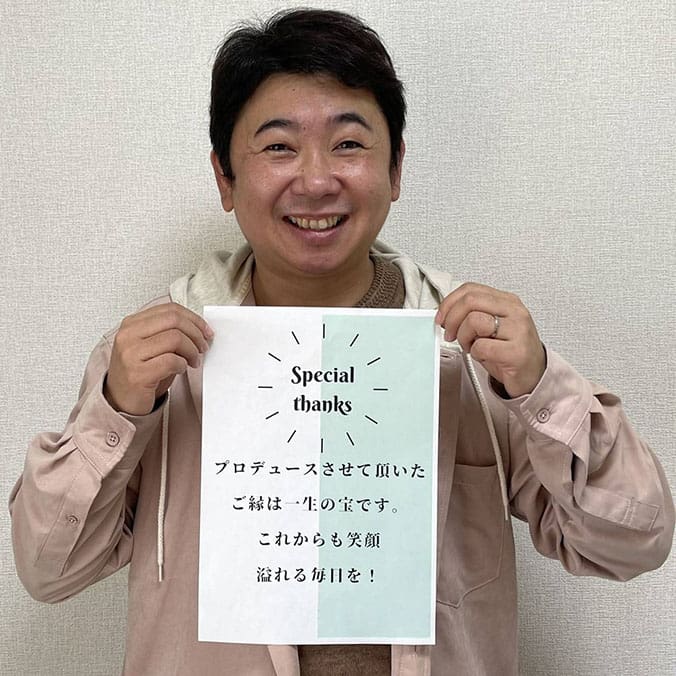 Special
thanks
プロデュースさせて頂いた
ご縁は一生の宝です。
これからも笑顔
溢れる毎日を！